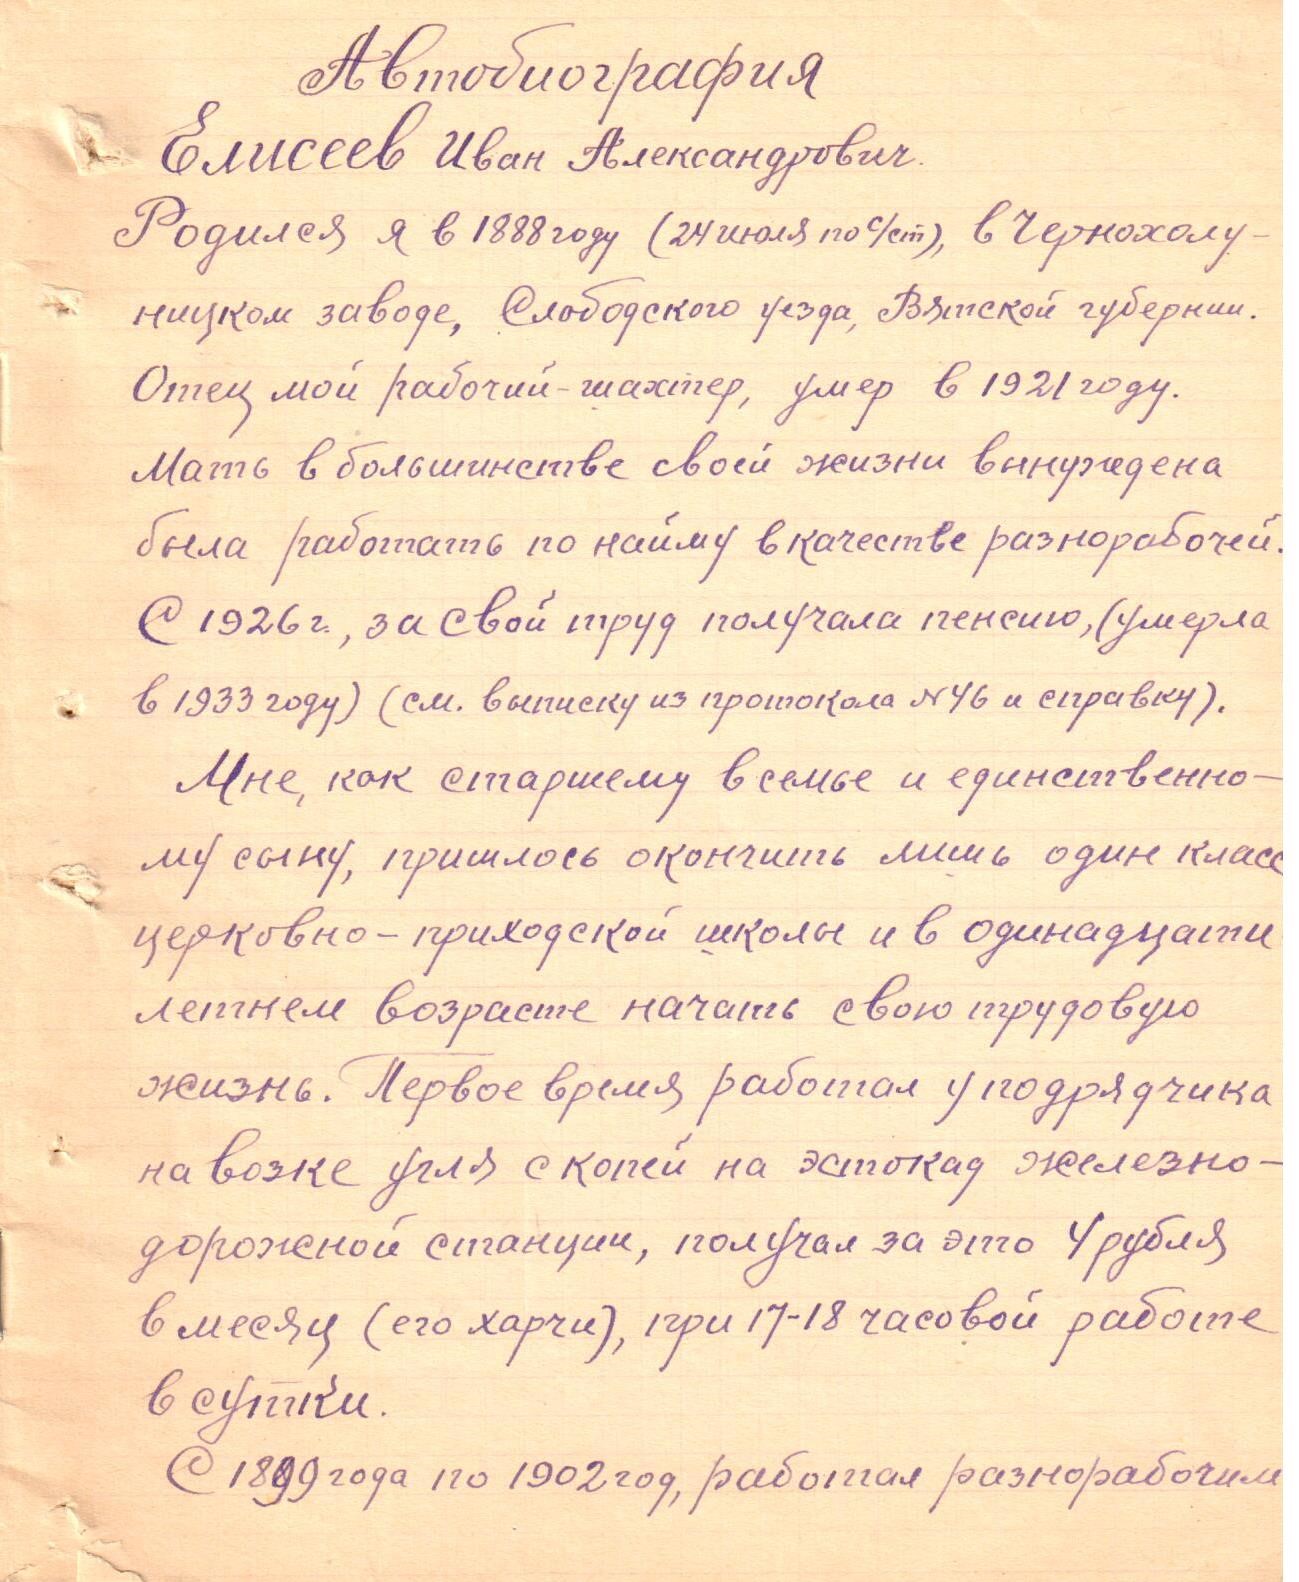 Автобиография
Елисеев Иван Александрович.
Родился я в 1888 году (24 июля по с/ст), в Чернохолу-
ницком заводе, Слободского уезда, Вятской губернии.
Отец мой рабочий-шахтер, умер в 1921 году.
Мать в большинстве своей жизни вынуждена
была работать по найму в качестве разнорабочей.
С 1926 г., за свой труд получала пенсию, (умерла
в 1933 году) (см. выписку из протокола №46 и справку).
Мне, как старшему в семье и единственно-
му сыну, пришлось окончить лишь один класс
церковно-приходской школы и в одинадцати
летнем возрасте начать свою трудовую
жизнь. Первое время работал у подрядчика
на возке угля с копей на эстокад железно-
дорожной станции, получал за это 4 рубля
в месяц (его харчи), при 17-18 часовой работе
в сутки.
С 1899 года по 1902 год, работал разнорабочим